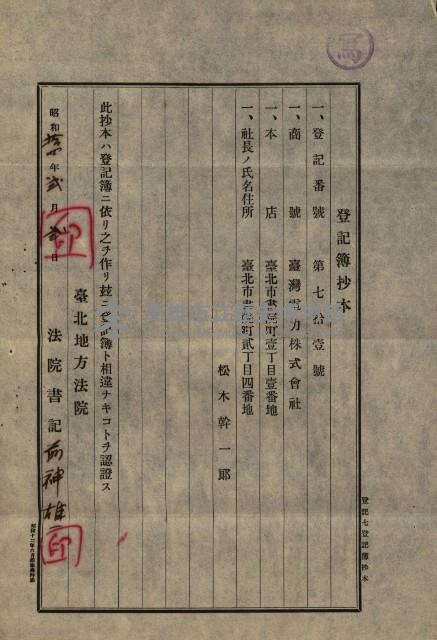 寫
登記簿抄本
一、登記番號 第七拾壹號
一、商號 臺灣電力株式會社
一、本店 臺北市書院町壹丁目壹番地
一、社長ノ氏名住所 臺北市書院町貳丁目四番地
松木幹一郎
此抄本ハ登記簿ニ依リ之ヲ作リ玆ニ登記簿ト相違ナキコトヲ認證ス
昭和 年貳月 日
臺北地方法院
法院書記 神雄
印
印
登記七登記簿抄本